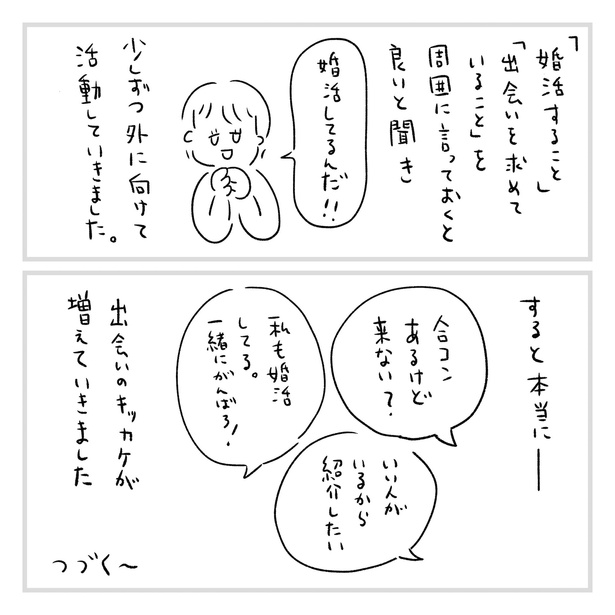 「婚活すること」
「出会いを求めて
いること」を
周囲に言っておくと
良いと聞き
婚活してるんだ!!
少しずつ外に向けて
活動していきました。
すると本当に―
合コン
あるけど
来ない?
私も婚活
してる。
一緒にがんばろ!
いい人が
いるから
紹介したい
出会いのキッカケが
増えていきました
つづく〜